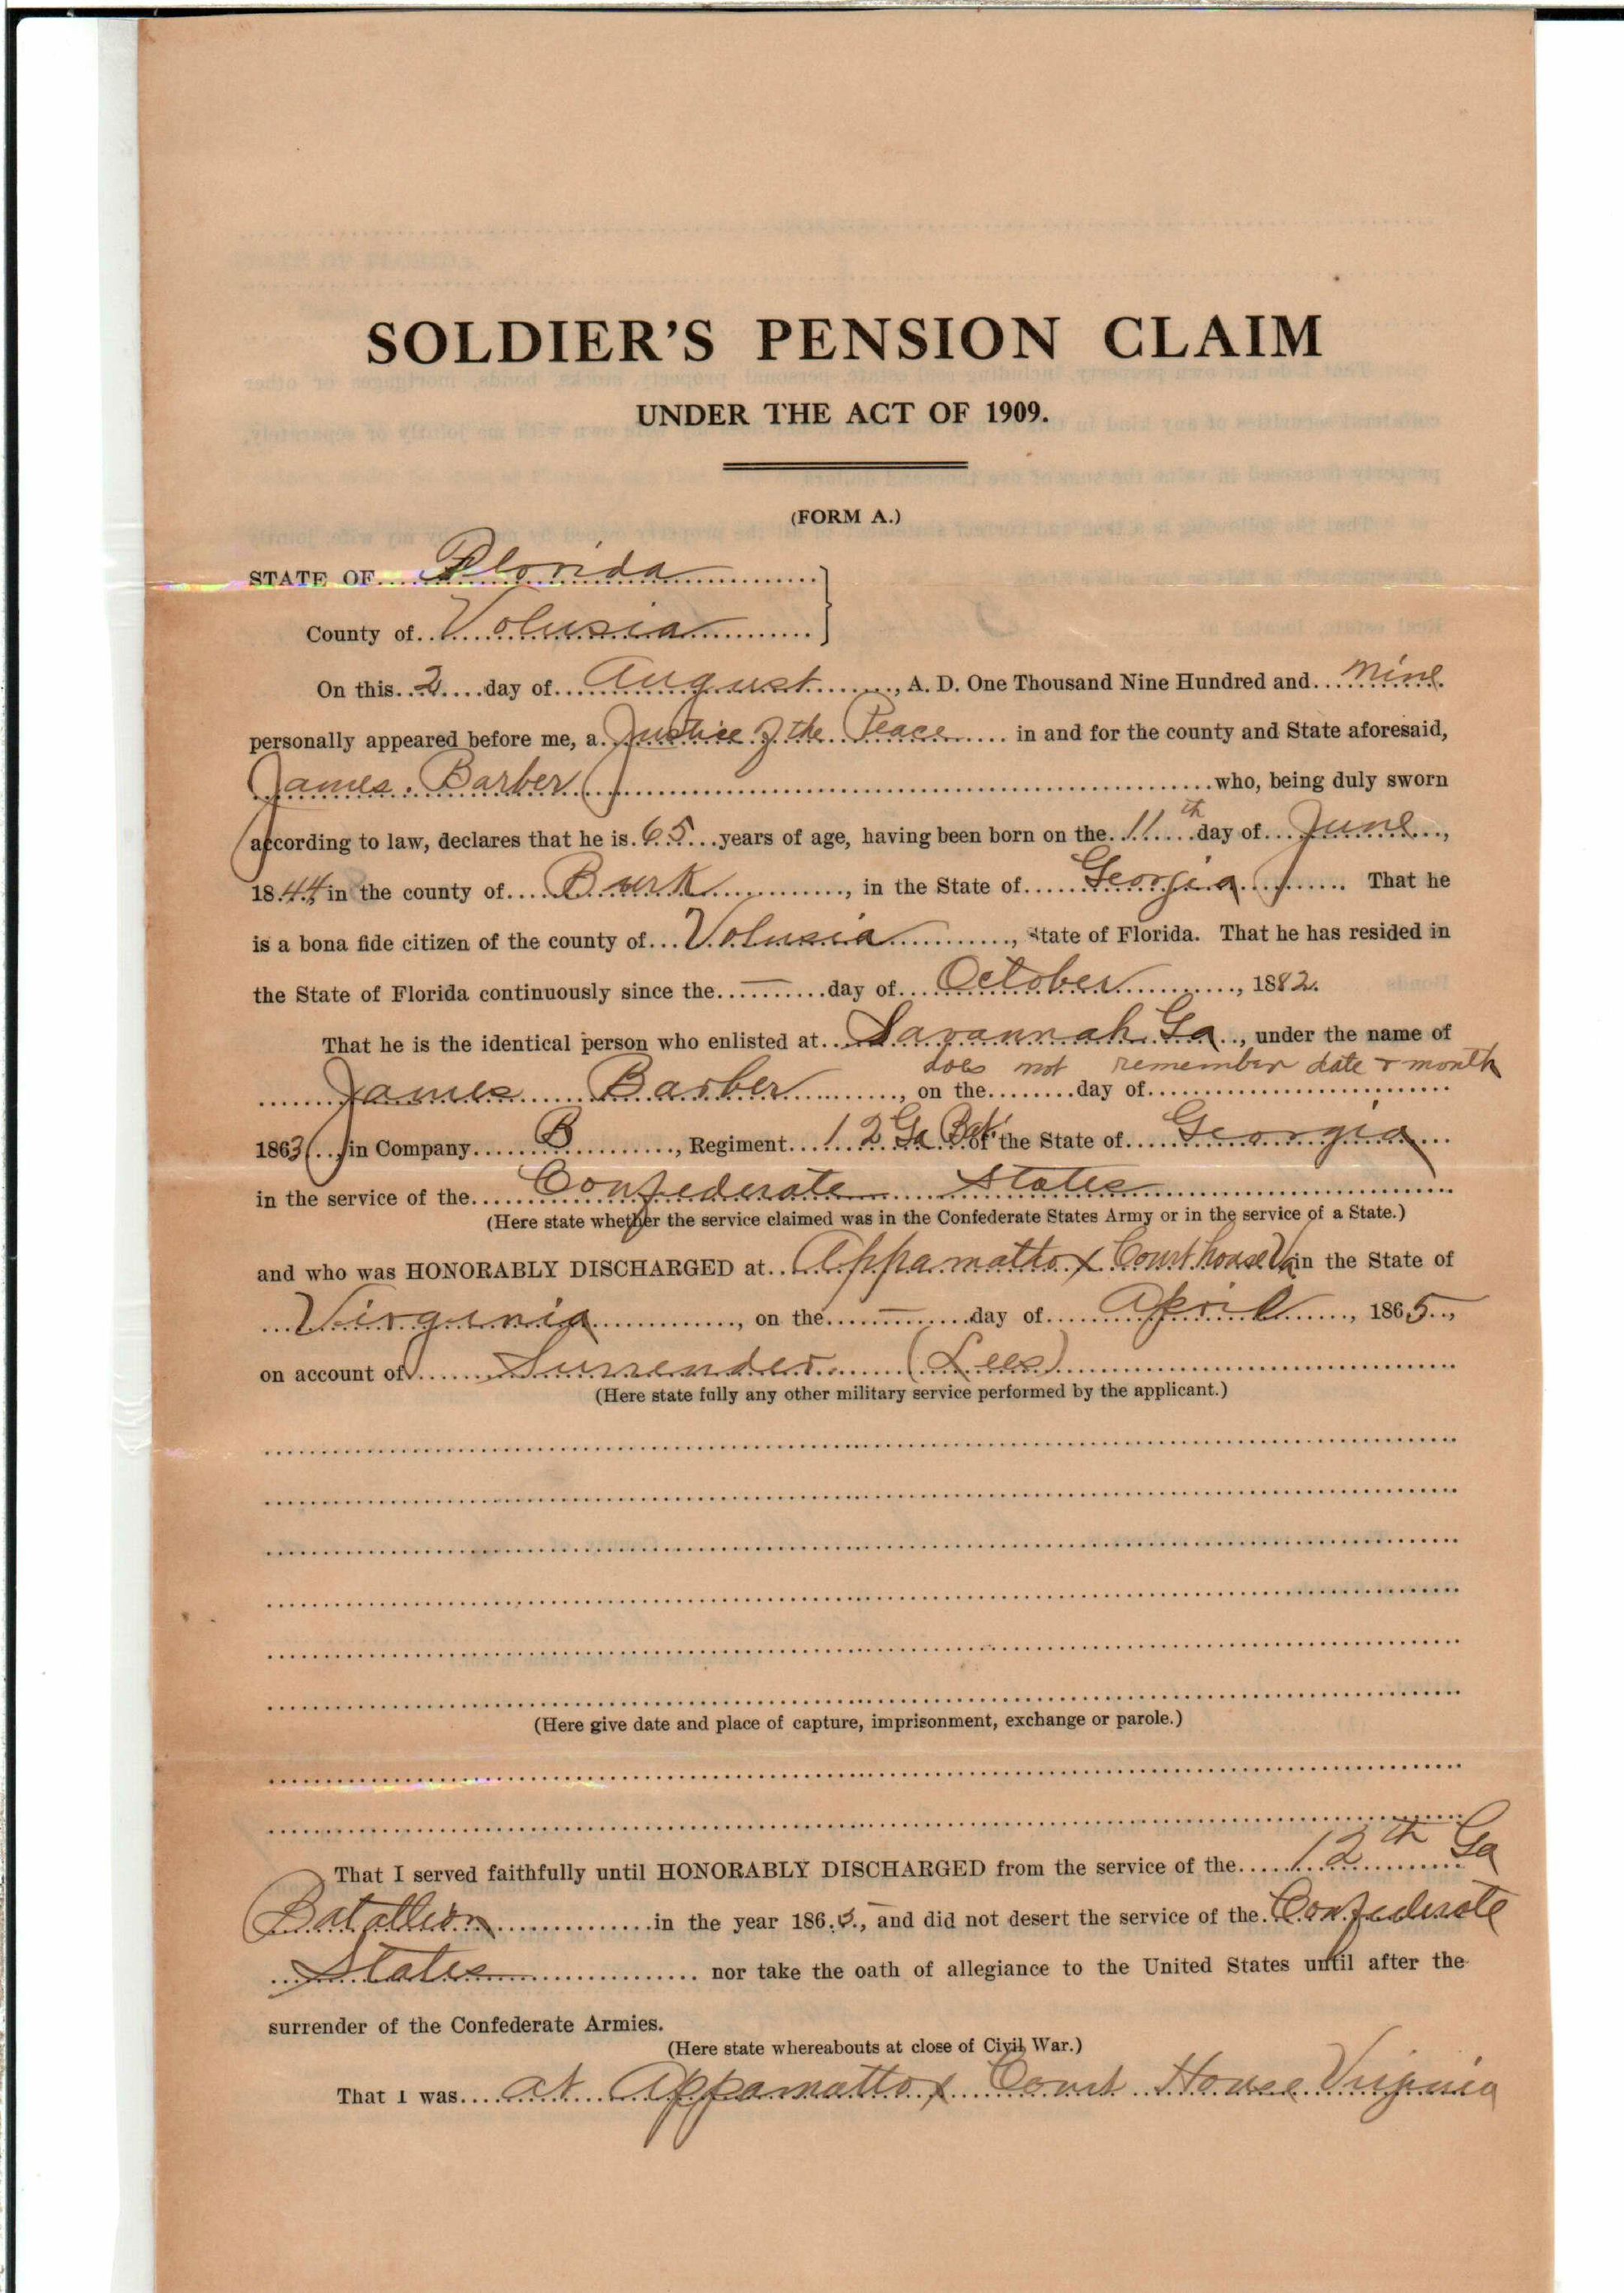 SOLDIER'S PENSION CLAIM
UNDER THE ACT OF 1909.
(FORM A.)
STATE OF Florida
County of Volusia
On this 2 day of August, A. D. One Thousand Nine Hundred and Nine
personally appeared before me, a Justice of the Peace in and for the county and State aforesaid,
James Barber who, being duly sworn
according to law, declares that he is 65 years of age, having been born on the 11th day of June,
1844, in the county of Burk, in the State of Georgia. That he
is a bona fide citizen of the county of Volusia, State of Florida. That he has resided in
the State of Florida continuously since the — day of October, 1882.
That he is the identical person who enlisted at Savannah Ga, under the name of
does not remember date & month
James Barber, on the day of
1863, in Company B, Regiment 12 Ga Bat of the State of Georgia
in the service of the Confederate States
(Here state whether the service claimed was in the Confederate States Army or in the service of a State.)
and who was HONORABLY DISCHARGED at Appamattox Court house Va in the State of
Virginia, on the — day of April, 1865,
on account of Surrender (Lees)
(Here state fully any other military service performed by the applicant.)
(Here give date and place of capture, imprisonment, exchange or parole.)
That I served faithfully until HONORABLY DISCHARGED from the service of the 12th Ga
Batallion in the year 1865, and did not desert the service of the Confederate
States nor take the oath of allegiance to the United States until after the
surrender of the Confederate Armies.
(Here state whereabouts at close of Civil War.)
That I was at Appamattox Court House Virginia